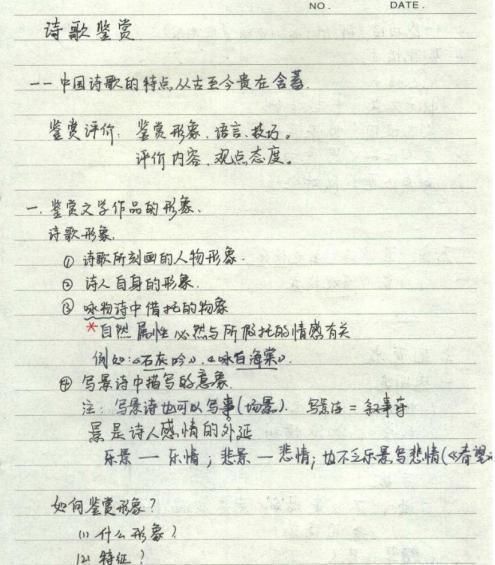 NO. DATE.
诗歌鉴赏
一一中国诗歌的特点从古至今贵在含蓄.
鉴赏评价: 鉴赏形象、语言、技巧。
评价内容、观点态度。
一. 鉴赏文学作品的形象.
诗歌形象.
① 诗歌所刻画的人物形象.
② 诗人自身的形象.
③ 咏物诗中借托的物象
*自然属性必然与所假托的情感有关
例如:《石灰吟》.《咏白海棠》.
④ 写景诗中描写的意象.
注: 写景诗也可以写事(场景). 写景诗 = 叙事诗
景是诗人感情的外延
乐景 — 乐情; 悲景 — 悲情; 也不乏乐景写悲情(《春望
如何鉴赏形象?
(1) 什么形象?
(2) 特征?